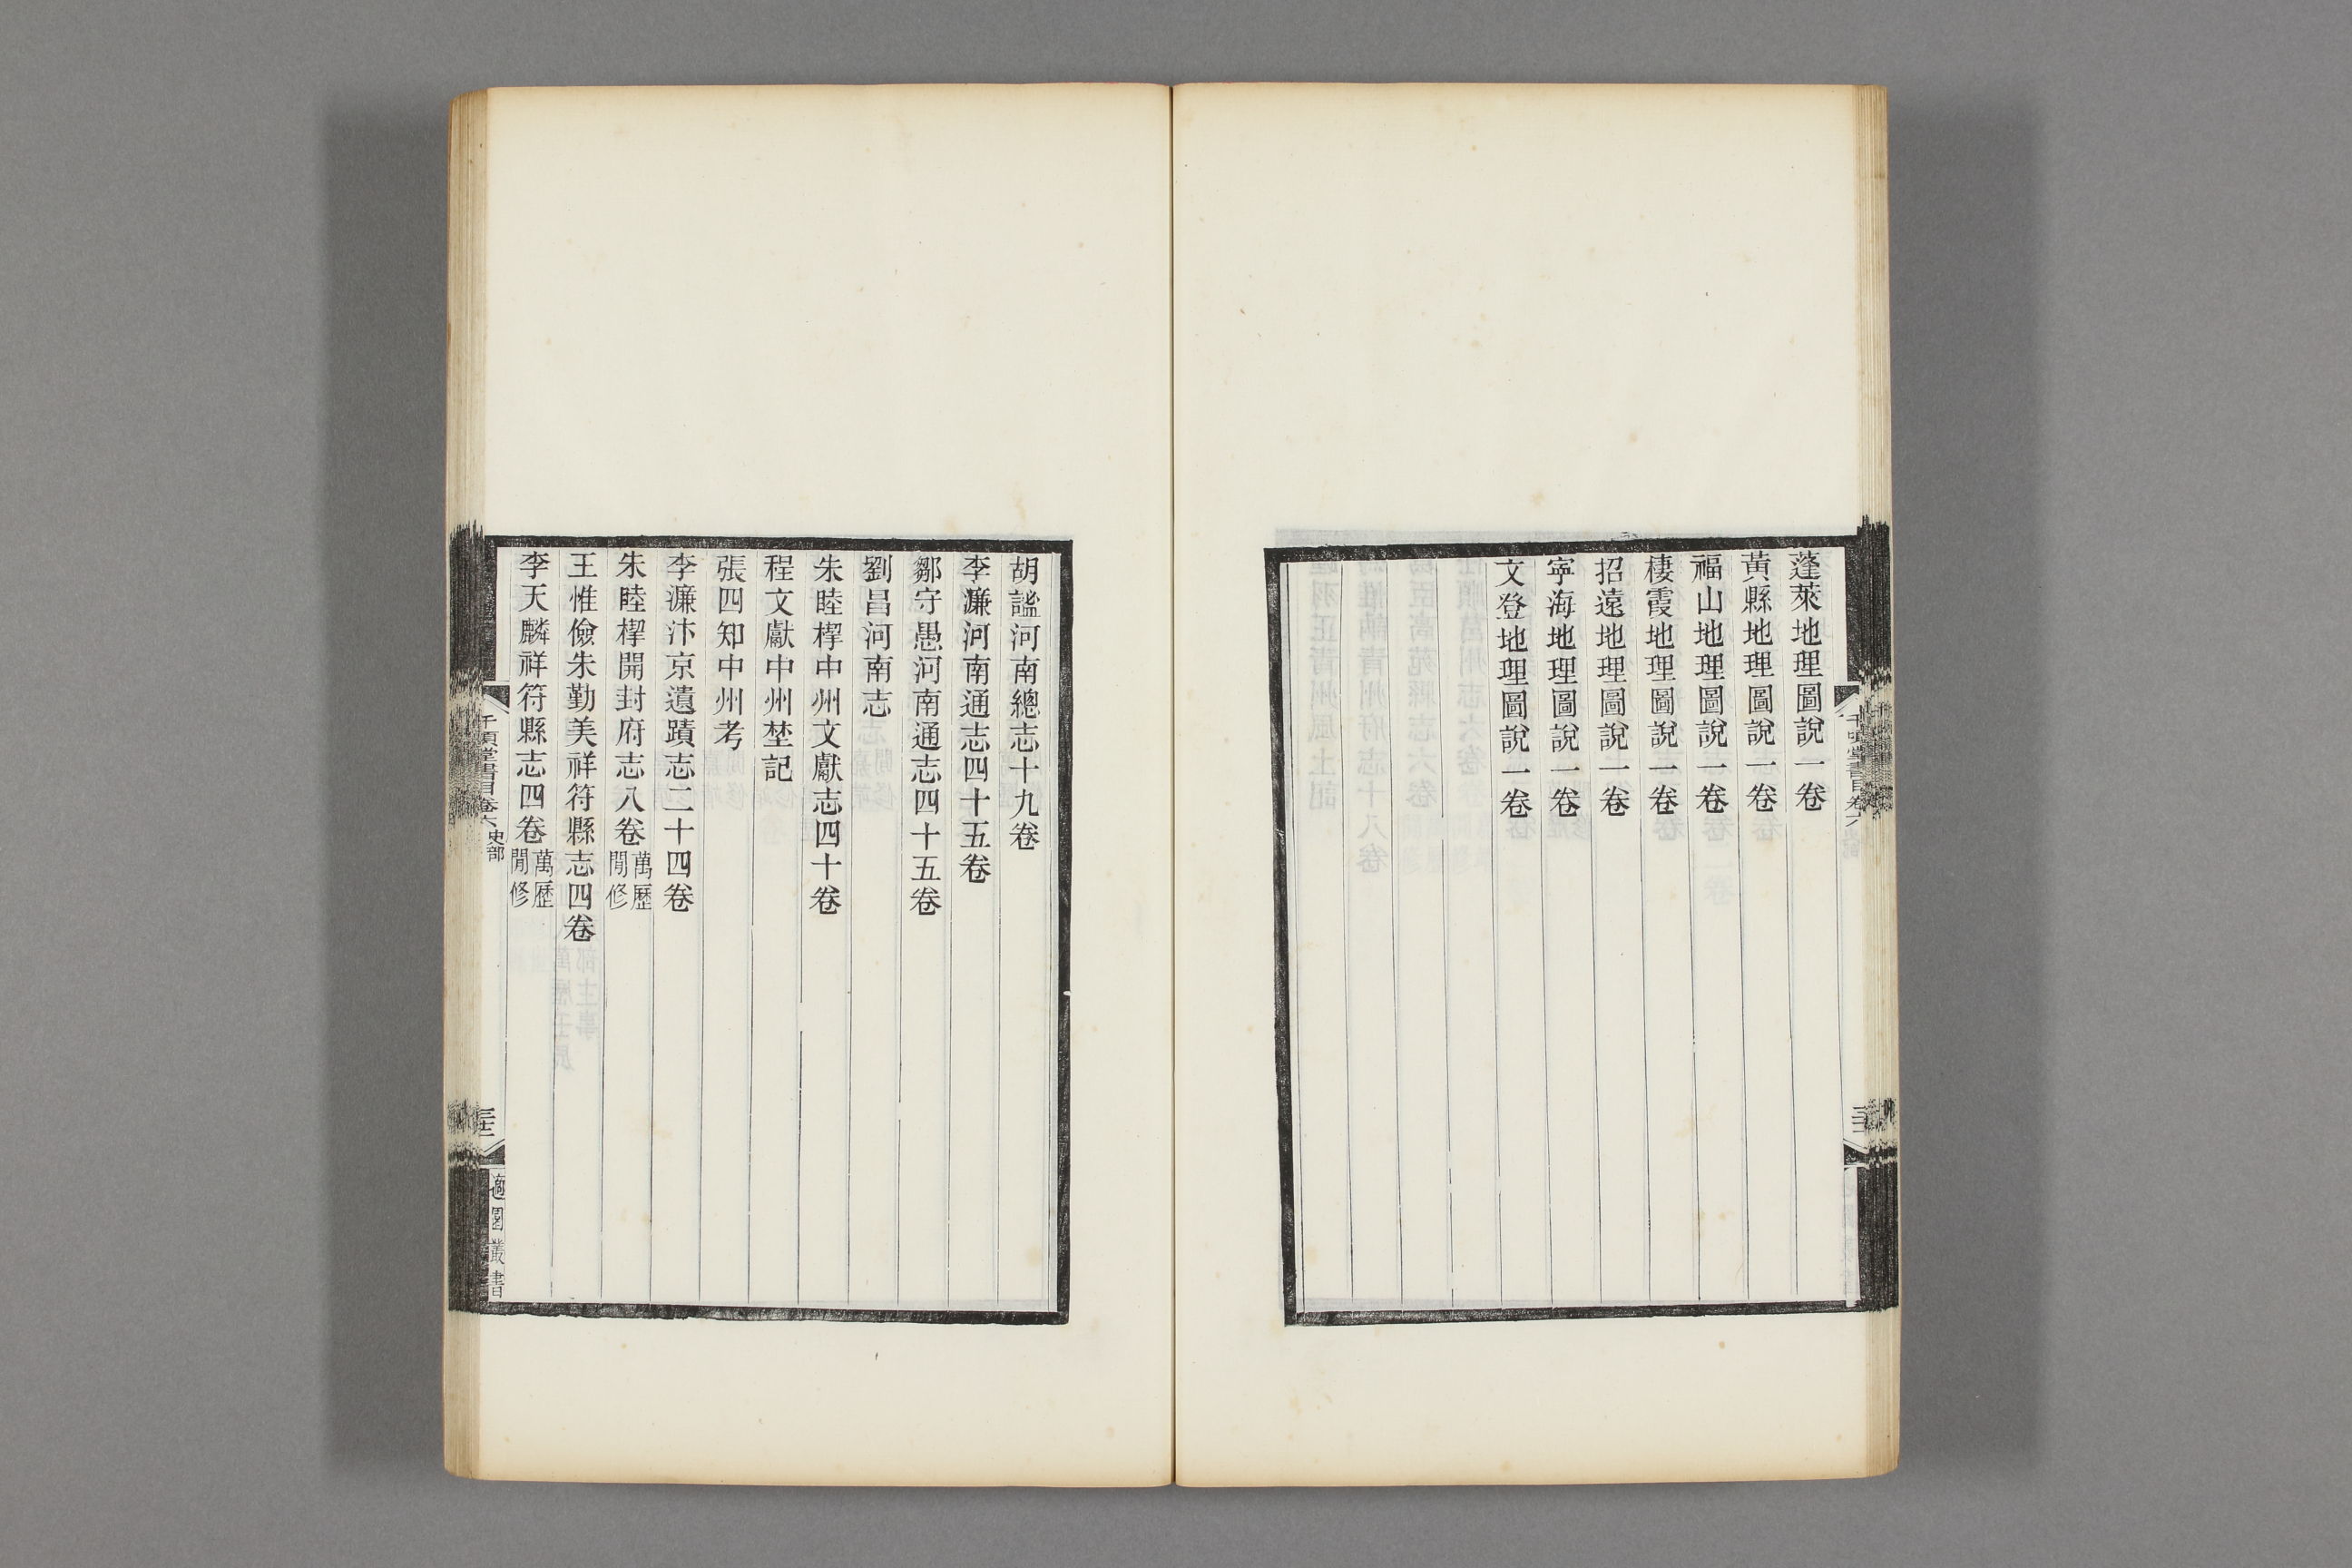 蓬萊地理圖說一卷
黃縣地理圖說一卷
福山地理圖說一卷
棲霞地理圖說一卷
招遠地理圖說一卷
寧海地理圖說一卷
文登地理圖說一卷
胡謐河南總志十九卷
李濂河南通志四十五卷
鄒守愚河南通志四十五卷
劉昌河南志
朱睦㮮中州文獻志四十卷
程文獻中州埜記
張四知中州考
李濂汴京遺蹟志二十四卷
朱睦㮮開封府志八卷萬歷閒修
王惟儉朱勤美祥符縣志四卷
李天麟祥符縣志四卷萬歷閒修
千頃堂書目卷六 史部
適園叢書